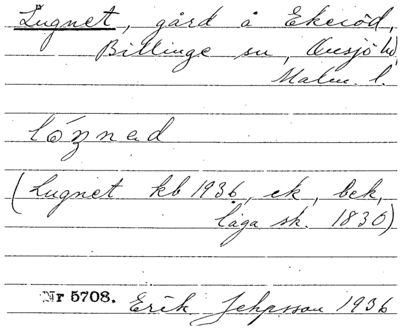 Lugnet, gård å Ekeröd,
Billinge sn, Onsjö hd,
Malm. l.
lóŋnəd
(Lugnet kb 1936, ek, bek,
laga sk. 1830)
Nr 5708. Erik Jeppsson 1936